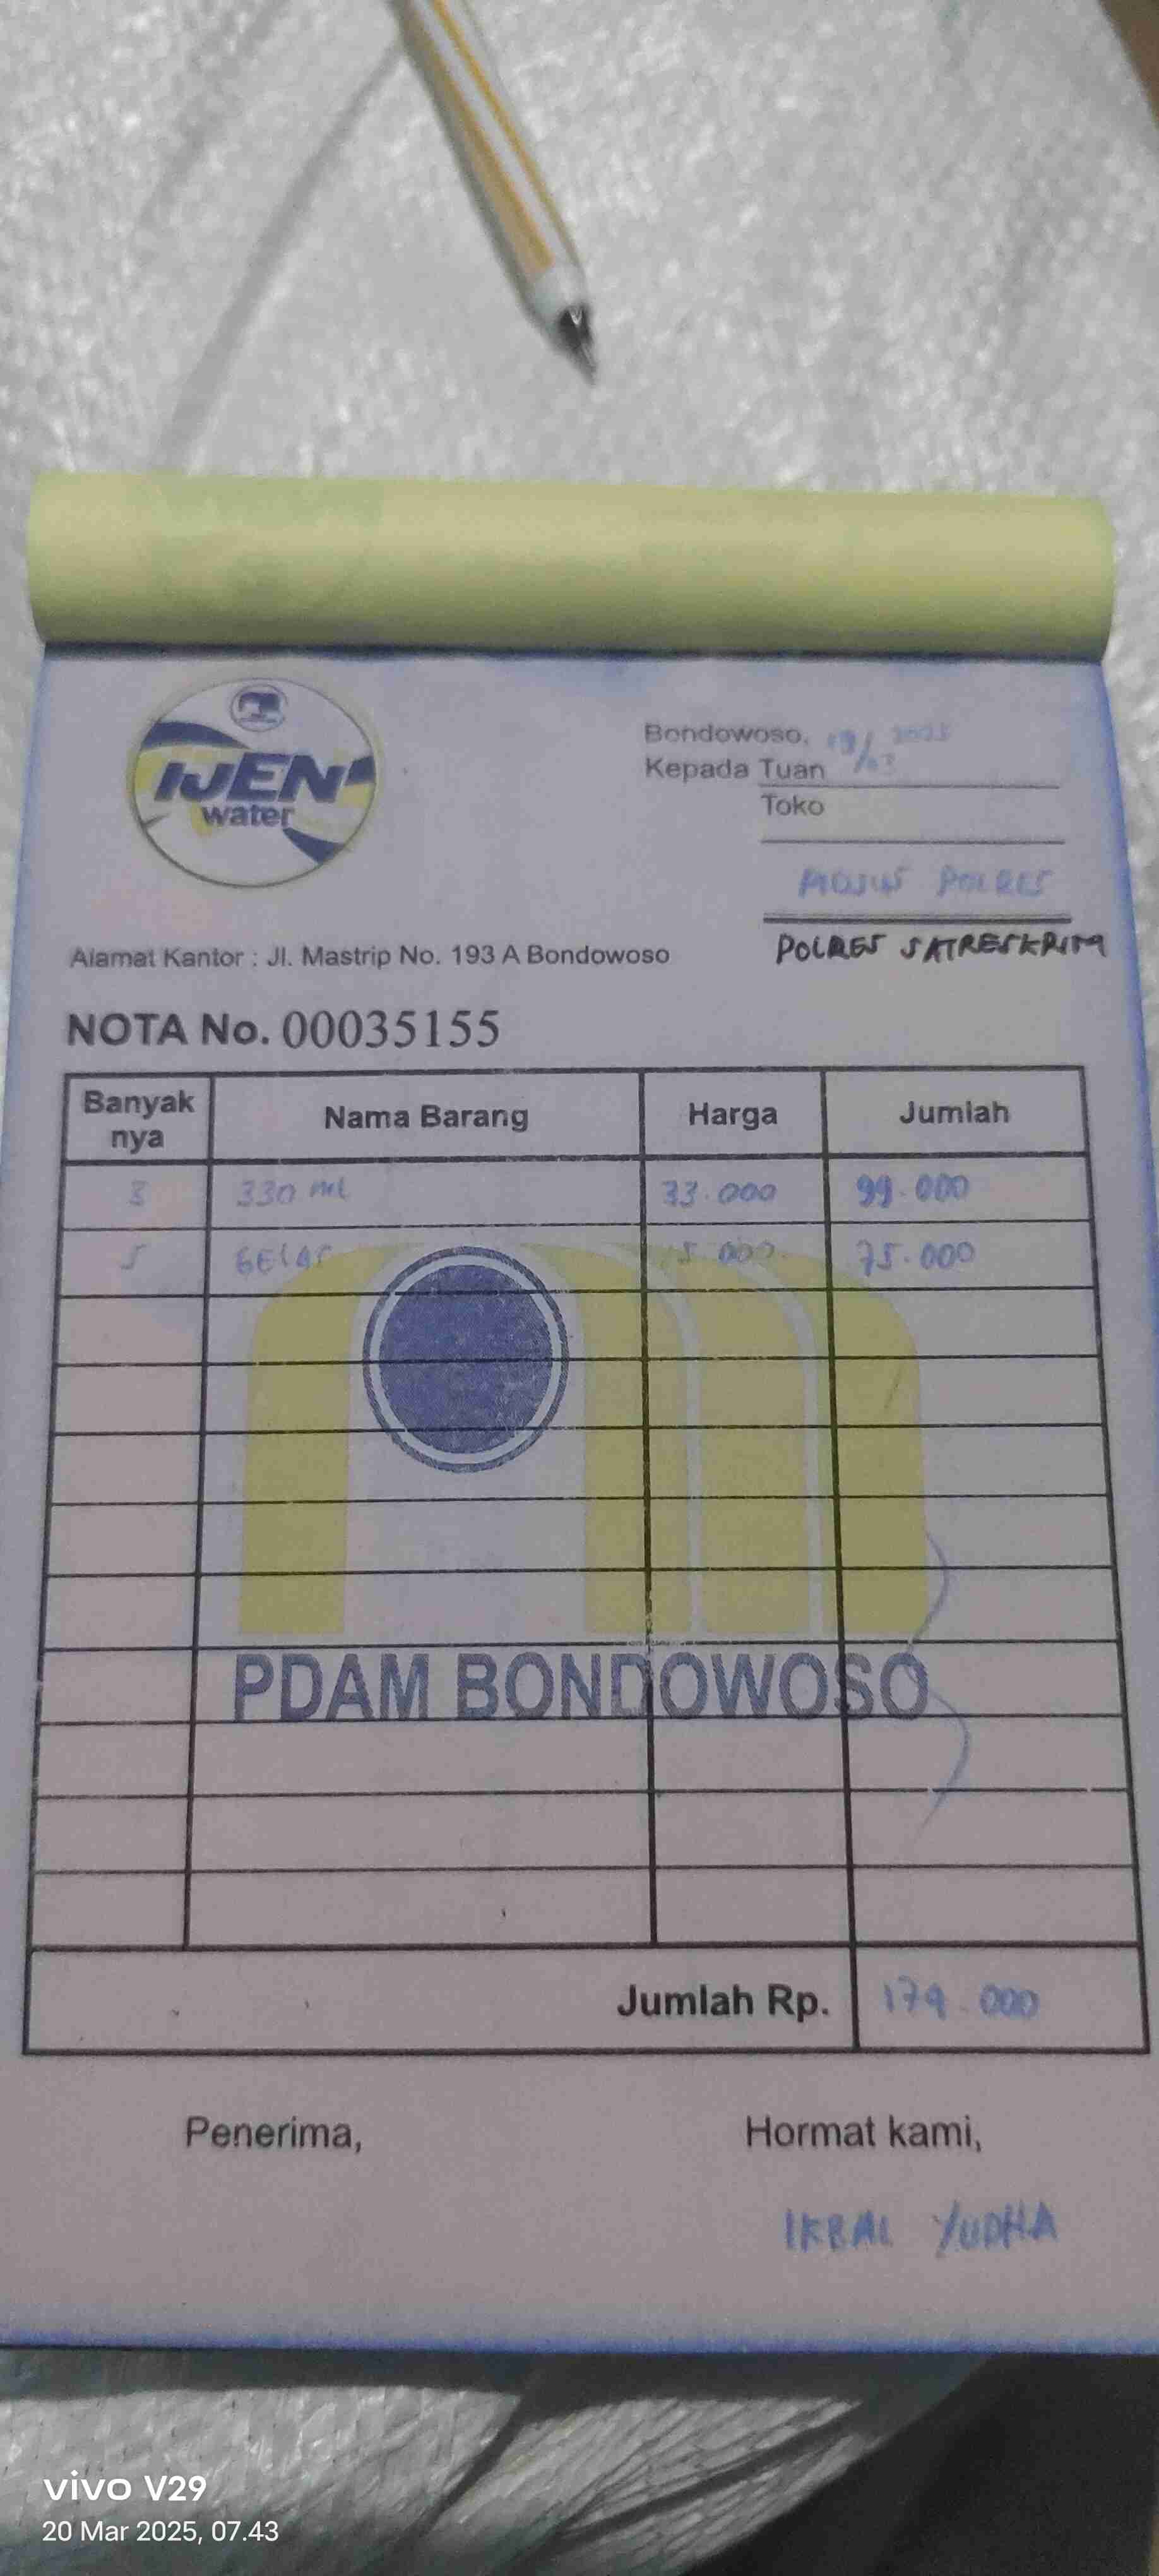 IJEN
water
Bondowoso, 19/03 2025
Kepada Tuan
Toko
POLRES
POLRES SATRESKRIM
Alamat Kantor : Jl. Mastrip No. 193 A Bondowoso
NOTA No. 00035155
Banyak nya Nama Barang Harga Jumlah
3 330 ml 33.000 99.000
5 GELAS 5.000 75.000
PDAM BONDOWOSO
Jumlah Rp. 174.000
Penerima, Hormat kami,
IKBAL YUDHA
vivo V29
20 Mar 2025, 07.43